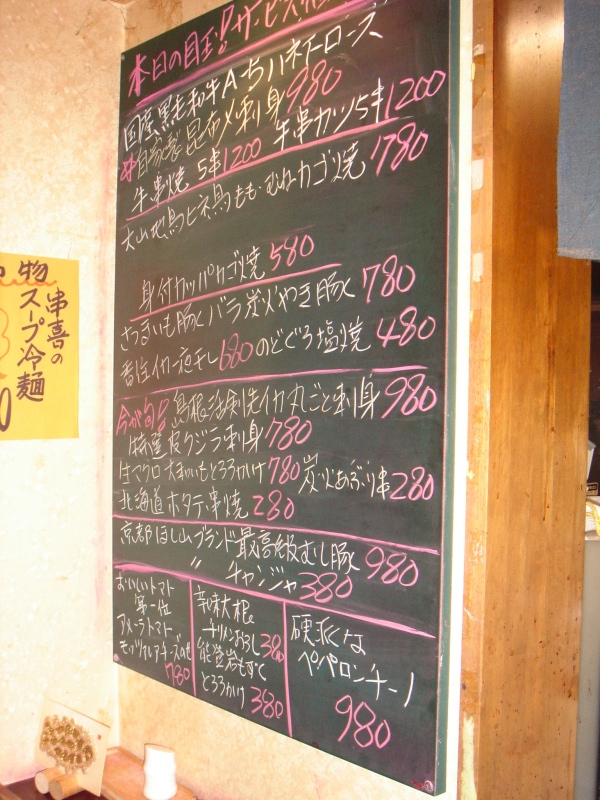 本日の目玉!サービス
国産黒毛和牛A-5ハネシタロース
自家製昆布〆刺身980
牛串焼 5本1200 牛串カツ5本1200
大山地鳥ヒネ鳥もも・むねカゴ焼780
身付カッパカゴ焼580
さつまいも豚バラ炭火やき豚780
香住イカ一夜干し680 のどぐろ塩焼480
今が旬!島根活剣先イカ丸ごと刺身980
特選皮クジラ刺身780
生マグロ大和いもとろろかけ780 炭火あぶり串280
北海道ホタテ串焼280
京都ほし山ブランド最高級むし豚980
〃 チャンジャ380
おいしいトマト
第一位
アメーラトマト
モッツァレアチーズのせ
780
辛味大根
チリメンおろし380
能登岩もずく
とろろかけ380
硬派な
ペペロンチーノ
980
物
串喜の
スープ冷麺